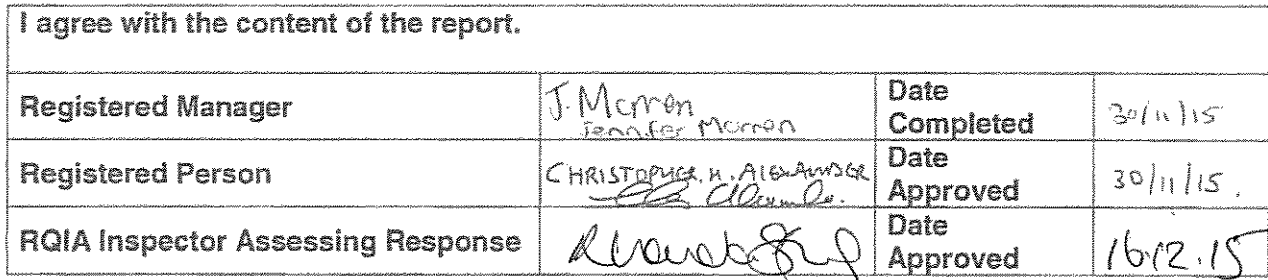 I agree with the content of the report.
Registered Manager J. Morron Date
Jennifer Morron Completed 30/11/15
Registered Person CHRISTOPHER. H. ALEXANDER Date
Approved 30/11/15.
RQIA Inspector Assessing Response Date
Approved 16.12.15